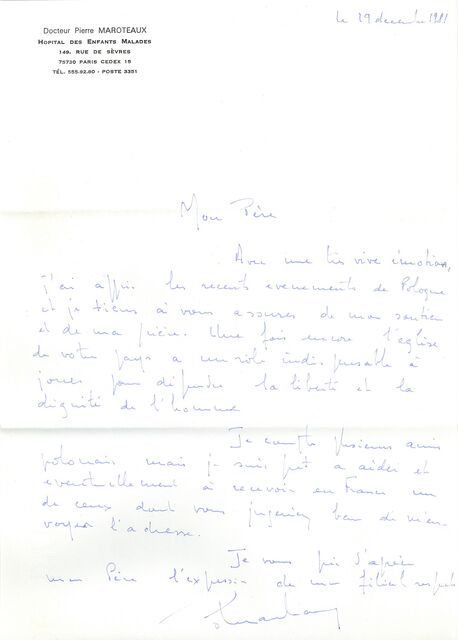 Docteur Pierre MAROTEAUX
HOPITAL DES ENFANTS MALADES
149, RUE DE SÈVRES
75730 PARIS CEDEX 15
TÉL. 555.92.80 - POSTE 3351
le 19 décembre 1981
Mon Père
Avec une très vive émotion,
j'ai appris les recents evenements de Pologne
et je tiens à vous assurer de mon soutien
et de ma prière. Une fois encore l'eglise
de votre pays a un rôle indispensable à
jouer pour défendre la liberté et la
dignité de l'homme
Je compte plusieurs amis
polonais mais je suis prêt a aider et
eventuellement à recevoir en France un
de ceux dont vous jugeriez bon de m'en-
voyer l'adresse.
Je vous prie d'agréer
mon Père l'expression de mon filial respect